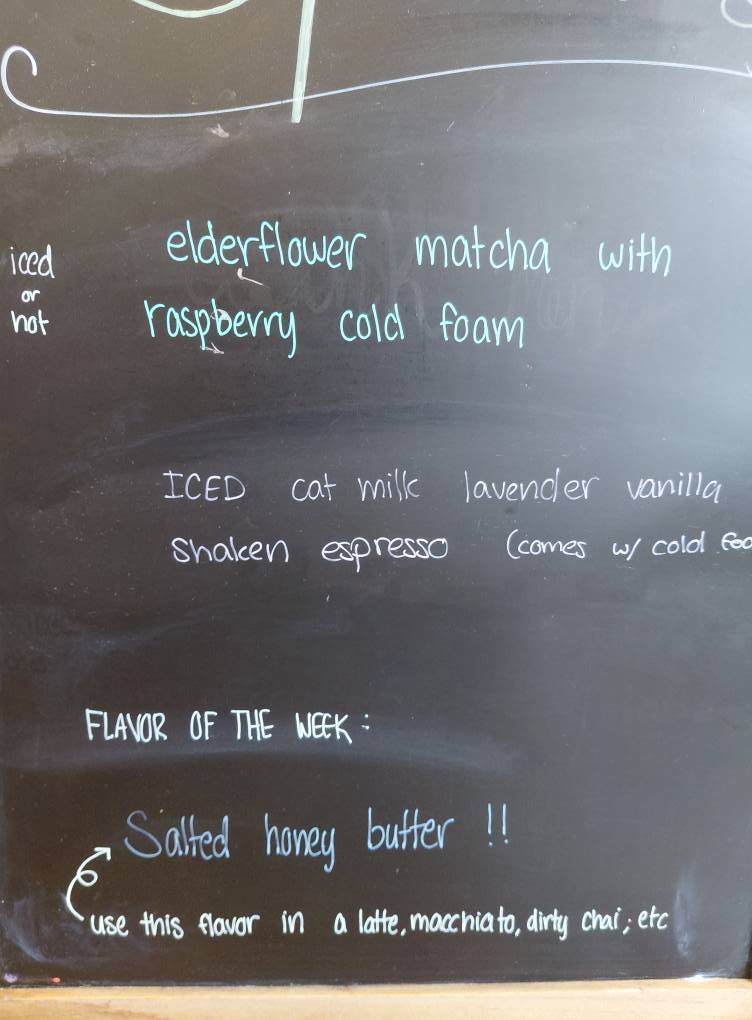 iced
or
hot
elderflower matcha with
raspberry cold foam
ICED cat milk lavender vanilla
shaken espresso (comes w/ cold
FLAVOR OF THE WEEK:
Salted honey butter !!
use this flavor in a latte, macchiato, dirty chai, etc